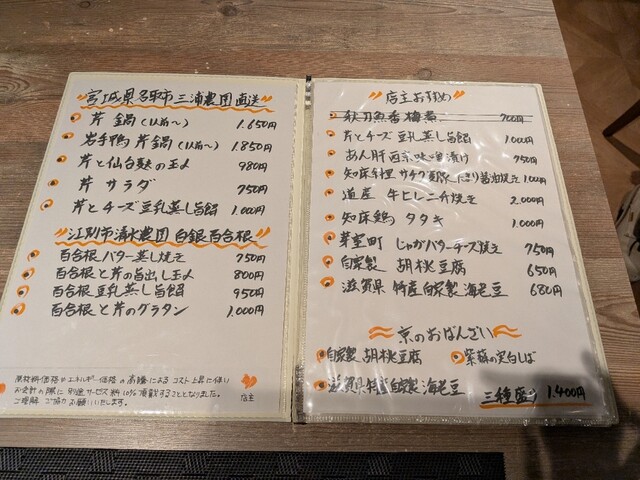 宮城県名取市三浦農園直送
芹鍋(1人前〜) 1.650円
岩手鴨 芹鍋(1人前〜) 1.850円
芹と仙台麩の玉〆 980円
芹 サラダ 750円
芹とチーズ豆乳蒸し旨餡 1.000円
江別市清水農園 白銀百合根
百合根バター蒸し焼き 750円
百合根と芹の旨出し玉〆 800円
百合根豆乳蒸し旨餡 950円
百合根と芹のグラタン 1.000円
原材料価格やエネルギー価格の高騰によるコスト上昇に伴い
お会計の際に別途サービス料10%頂戴することとなりました。
ご理解ご協力お願いいたします。
店主
店主おすすめ
秋刀魚香梅煮 700円
芹とチーズ 豆乳蒸し旨餡 1.000円
あん肝西京味噌漬け 750円
知床料理 醤油焼き 1.000円
道産 牛ヒレニンニク焼き 2.000円
知床鶏 タタキ 1.000円
芽室町 じゃがバターチーズ焼き 750円
自家製 胡桃豆腐 650円
滋賀県 特産自家製 海老豆 680円
京のおばんざい
自家製 胡桃豆腐 紫蘇の実白しば
滋賀県特産自家製 海老豆
三種盛り 1.400円